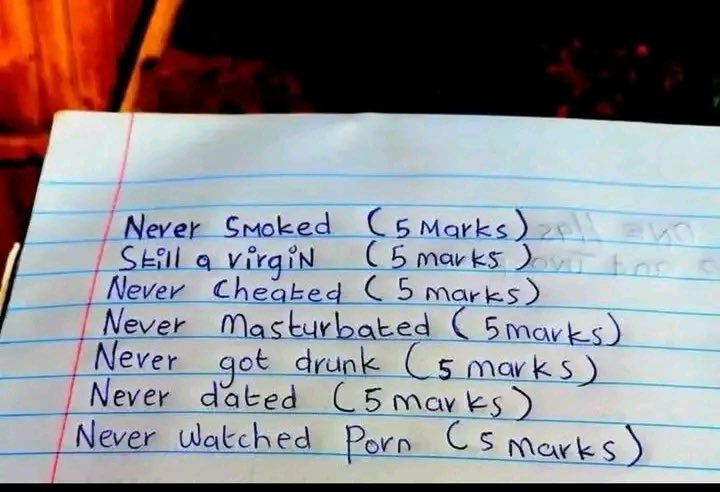 Never Smoked (5 Marks)
Still a virgin (5 marks)
Never Cheated (5 marks)
Never Masturbated (5marks)
Never got drunk (5 marks)
Never dated (5 marks)
Never Watched Porn (5 marks)